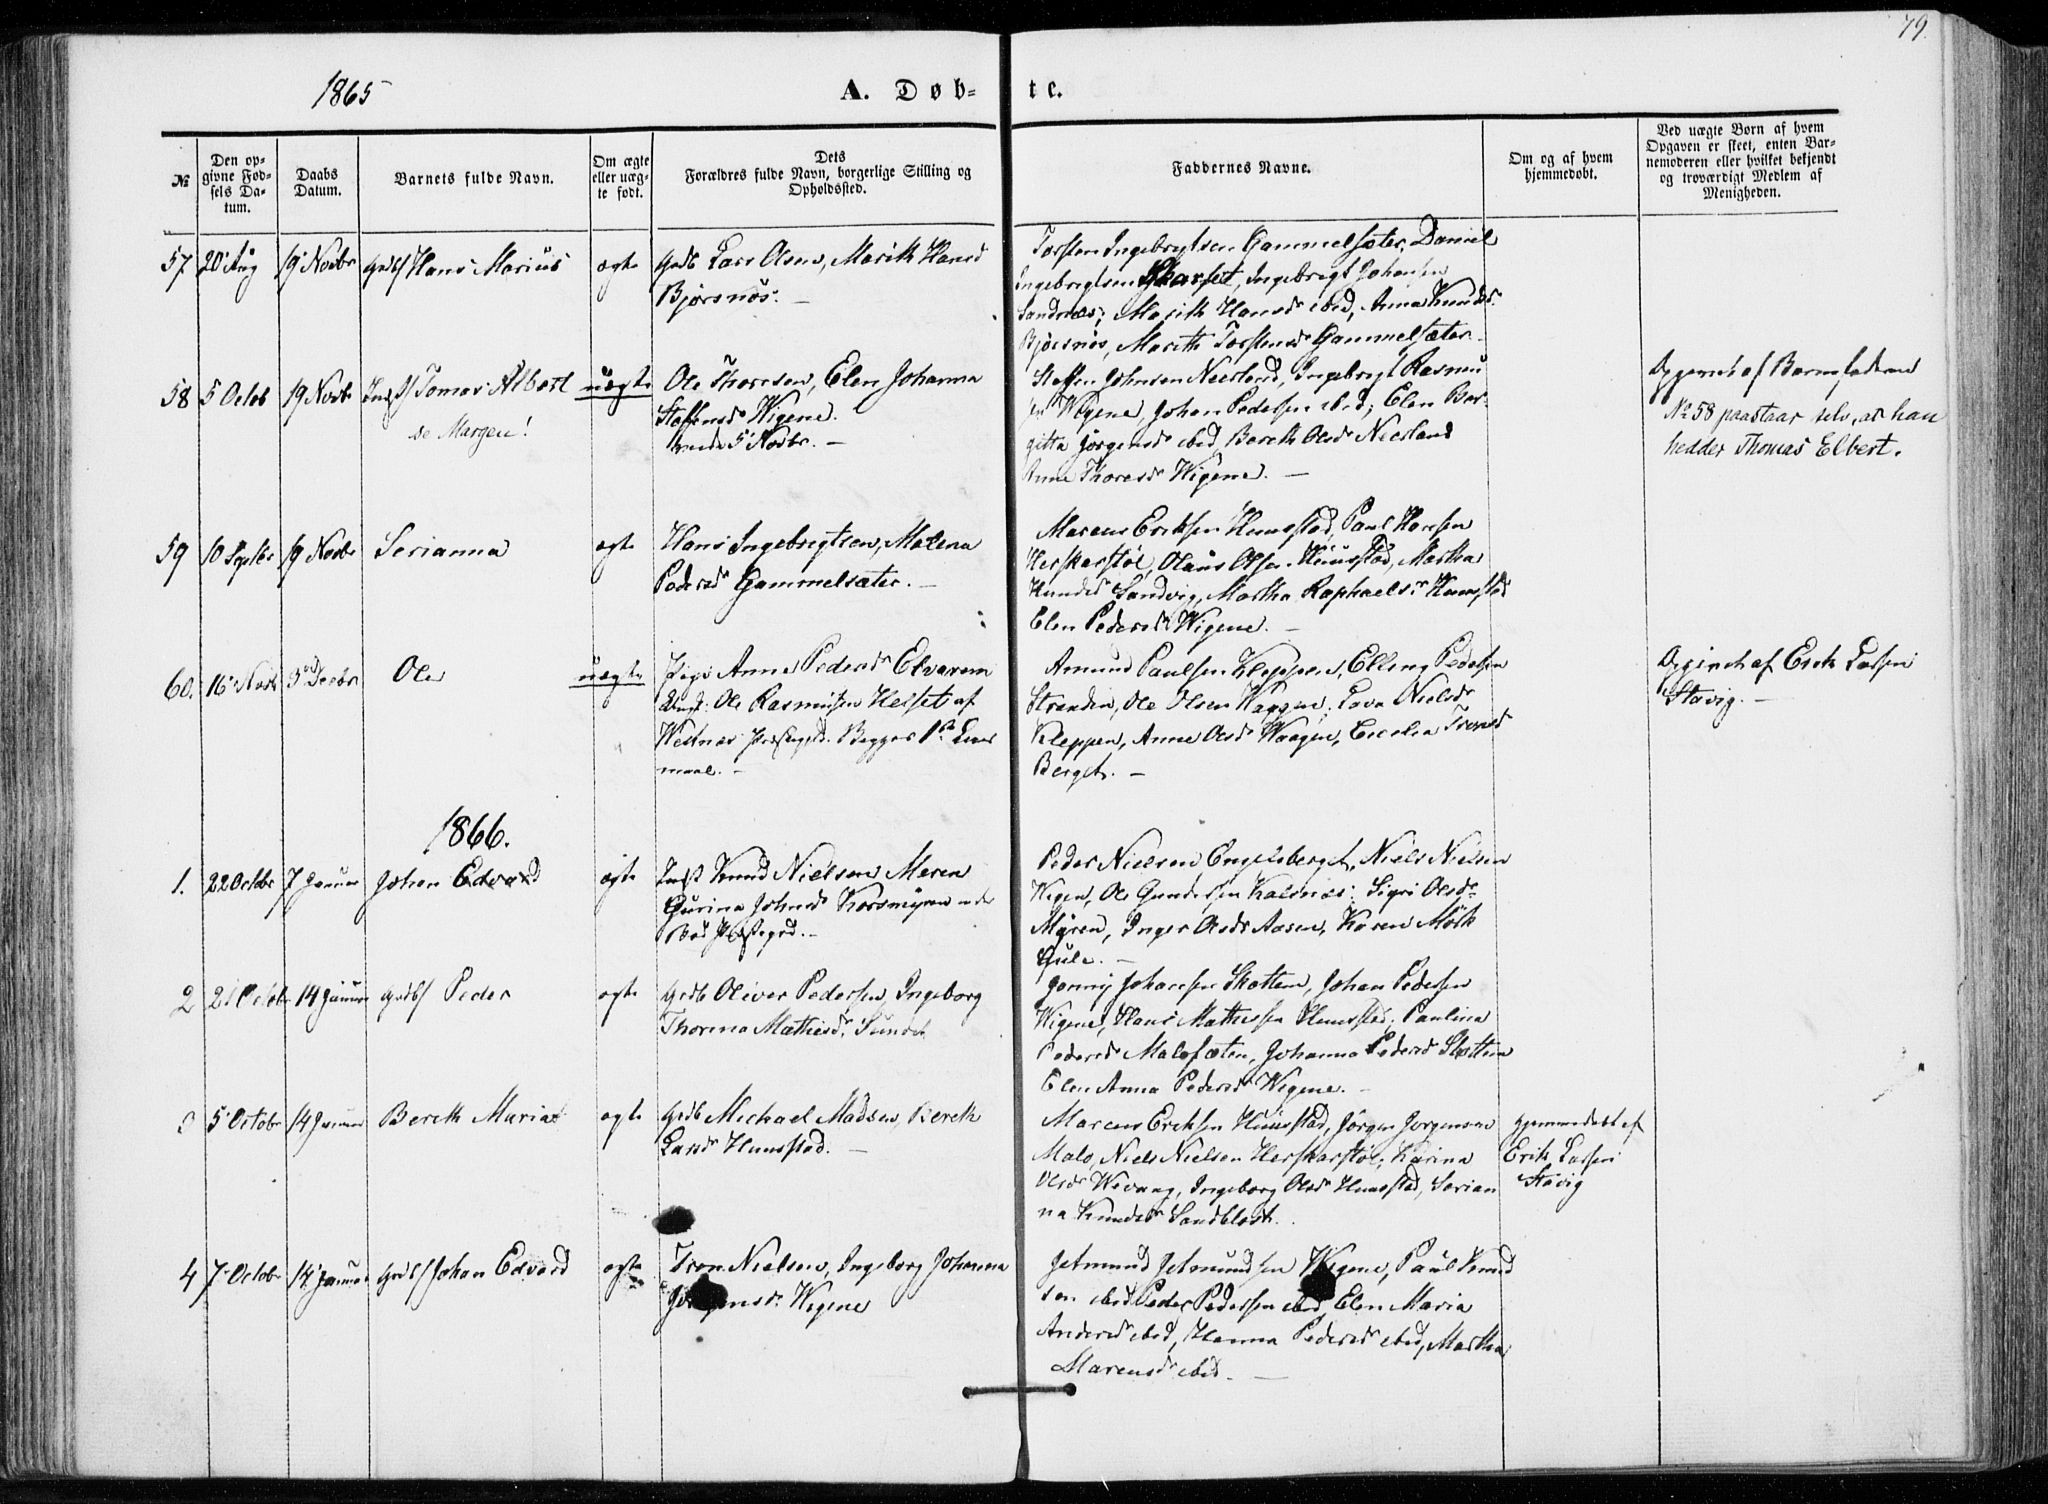 79.
1865
A. Døb-
te.
№
Den opgivne Fødsels Datum.
Daabs Datum.
Barnets fulde Navn.
Om ægte eller uægte født.
Dets
Forældres fulde Navn, borgerlige Stilling og Opholdssted.
Faddernes Navne.
Om og af hvem hjemmedøbt.
Ved uægte Børn af hvem Opgaven er skeet, enten Barnemoderen eller hvilket bekjendt og troværdigt Medlem af Menigheden.
57 20 Aug 19 Novbr Hans Marius ægte Lars Olsen, Marith Hansd
Bjørsnøs.
Torsten Ingebrigtsen Gammelsæter, Daniel
Ingebrigtsen Skarset, Ingebrigt Johansen
Sandnæs; Marith Hansdr ibid, Anna Knudsdr
Bjørsnøs, Marith Torstensdr Gammelsæter.
58 5 Octob 19 Novbr Tomas Albert uægte Ole Thoresen, Elen Johanna
se Margen!
Steffensdr Wigene.
5 Novbr.
Steffen Johnsen Neerland, Ingebrigt Rasmu
sen Wigene, Johan Pedersen ibid; Elen Ber-
gitta Jørgensdr ibid, Bereth Olsdr Neerland
Anne Thoresdr Wigene.
af Barnefaderen
№ 58 paastaar selv, at han
hedder Thomas Elbert.
59 10 Septbr 19 Novbr Serianna ægte Hans Ingebrigtsen, Malena
Pedersdr Gammelsæter.
Marcus Eriksen Hunstad, Paul Hansen
Herskarstøl, Olaus Olsen Hunstad, Martha
Knudsdr Sandvig, Martha Raphaelsdr Hunstad
Elen Pedersdr Wigene.
60. 16 Novb 3 Decbr Ole uægte Pige Anne Pedersdr Elvarem
Ole Rasmussen Helset af
Westnes Præstegjeld. Begges 1ste Leier
maal.
Amund Paulsen Kleppen, Elling Pedersen
Stranden, Ole Olsen Waagen, Lava Nielsdr
Kleppen, Anne Olsdr Waagen, Cecelia Tronsdr
Berget.
af Erik Larsen
Stavig.
1866.
1. 22 Octbr 7 Januar Johan Edvard ægte Knud Nielsen Maren
Gurina Johnsdr Korsmyren under
Bod Præstegjd.
Peder Nielsen Engelsberget, Niels Nielsen
Wigen, Ole Gundersen Kalsnæs; Sigri Olsdr
Myren, Inger Olsdr Aasen, Karen Mørk
Gule.
2 21 Octbr 14 Januar Peder ægte Oliver Pedersen, Ingeborg
Thorina Mathisdr Sundet
Jonny Johansen Skotten, Johan Pedersen
Wigene, Hans Mathissen Hunstad; Paulina
Pedersdr Malosæter, Johanna Pedersdr Skotten
Elen Anna Pedersdr Wigene.
3 5 Octobr 14 Januar Bereth Maria ægte Michael Madsen, Bereth
Larsdr Hunstad.
Marcus Eriksen Hunstad, Jørgen Jørgensen
Malo, Niels Nielsen Herskarstøl; Karina
Olsdr Wevang, Ingeborg Olsdr Hunstad, Serian
na Knudsdr Sandblost.
hjemmedøbt af
Erik Larsen
Stavig
4 7 Octobr 14 Januar Johan Edvard ægte Tron Nielsen, Ingeborg Johanna
Jørgensdr Wigene
Jetmund Jetmundsen Wigene, Paul Knud
sen ibid Peder Pedersen ibid, Elen Maria
Andersdr ibid, Hanna Pedersdr ibid, Martha
Marcusdr ibid.